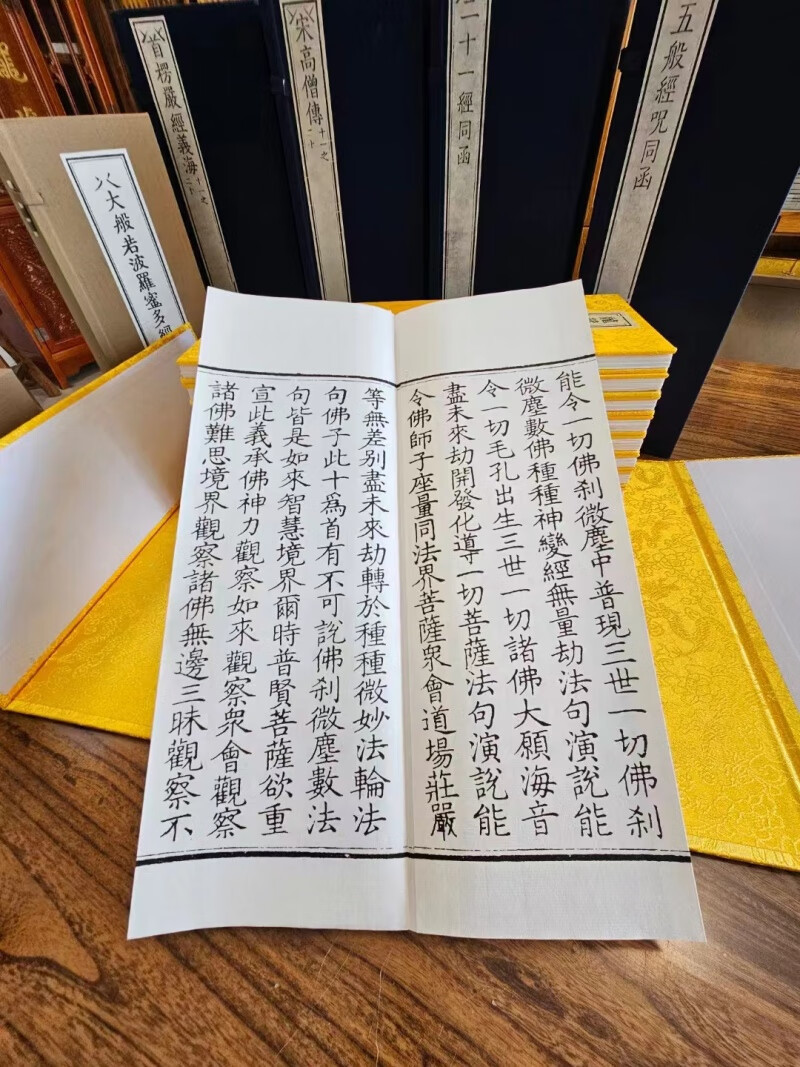 五般經呪同函
二十一經同函
宋高僧傳
首楞嚴經義海
大般若波羅蜜多經
能令一切佛刹微塵中普現三世一切佛刹
微塵數佛種種神變經無量劫法句演說能
令一切毛孔出生三世一切諸佛大願海音
盡未來劫開發化導一切菩薩法句演說能
令佛師子座量同法界菩薩衆會道場莊嚴
等無差別盡未來劫轉於種種微妙法輪法
句佛子此十爲首有不可說佛刹微塵數法
句皆是如來智慧境界爾時普賢菩薩欲重
宣此義承佛神力觀察如來觀察衆會觀察
諸佛難思境界觀察諸佛無邊三昧觀察不